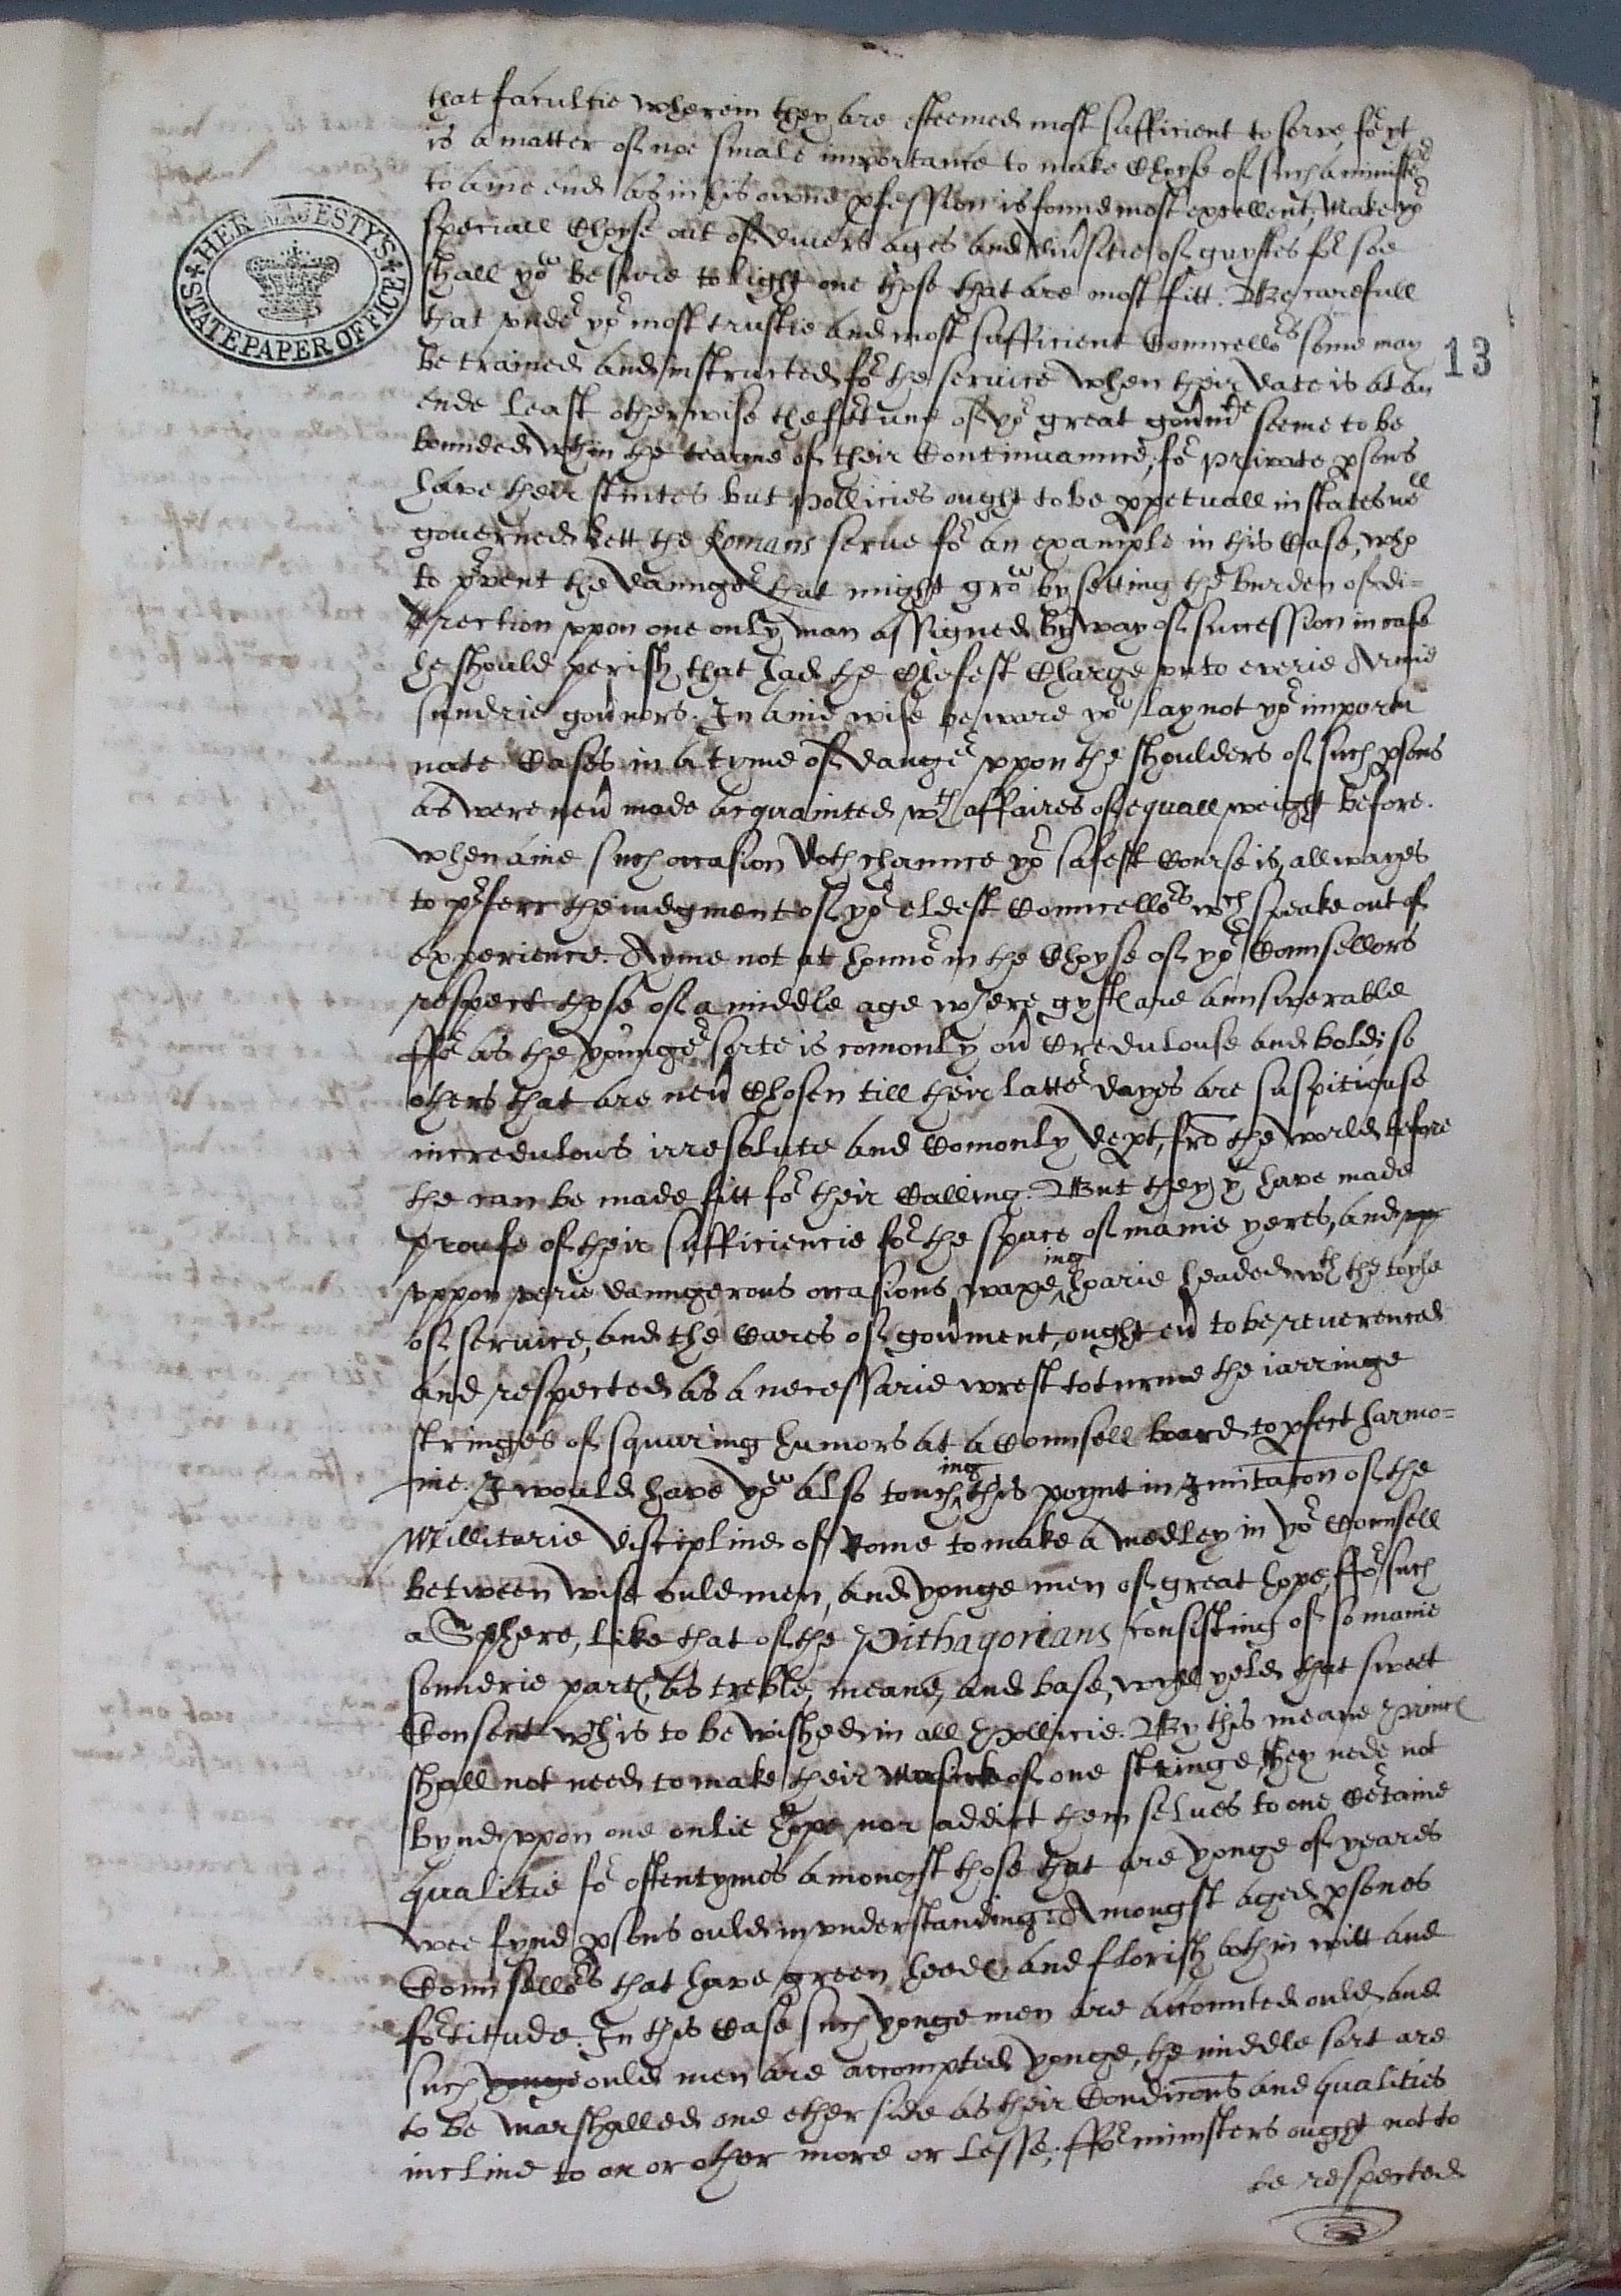 that facultie wherein they are esteemed most sufficient to serve, for yt
is a matter of noe smale importance to make choyse of such a minister
to anie end as in his owne pfession is found most excellent, Make yor
speciall Choyse out of divers ages and diusitie of guyftes for soe
shall yow be sure to light one those that are most fitt. Be carefull
that vnder yor most trustie and most sufficient Councellors some may
be trained and instructed for the service when their date is at an
ende least otherwise the fortune of yor great gounmt seeme to be
bounded wthin the tearme of their Continuaunce, for private psons
have their stintes but pollicies ought to be ppetuall in states well
governed. Lett the Romans serue for an example in this Case, who
to prvent the daunger that might grow by setting the burden of di=
rection vpon one only man assigned by way of succession in case
he should perish that had the Chefest Charge vnto everie Armie
sundrie gounors. In anie wise beware yow lay not yor importu
nate Cases in a tyme of daunger vppon the shoulders of such psons
as were neu made acquainted wth affaires of equall weight before.
when anie such occasion doth chaunce yor safest Course is, allwayes
to prferr the iudgment of yor eldest Councellors wch speake out of
experience. Ayme not at honnor in the Choyse of yor Counsellors
respect those of a middle age where gyftes are aunswerable
ffor as the younger sorte is comonly ou Credulouse and bold, so
others that are neu Chosen till their latter dayes are suspitiouse
incredulous irresolute and Comonly dept, fro the world before
the can be made fitt for their Calling. But they yt have made
proufe of their sufficiencie for the space of manie yeres, and vp
vppon verie daungerous occasions, waxe hoarie headed wth the toyle
ing
of service, and the Cares of gounment, ought eu to be reverenced
and respected as a necessarie wrest to turne the iarringe
stringes of squaring humors at a Counsell board to pfect harmo=
nie. I would have yow also touch this poynt in Imitacon of the
ing
Millitarie discipline of Rome to make a medley in yor Counsell
between wise ould men, and yonge men of great hope, ffor such
a Sphere, like that of the Pithagorians consisting of so manie
soundrie partes, as treble, meane, and base, will yeld that sweet
Consent wch is to be wished in all Pollicie. By this meane Princes
shall not need to make their Musicke of one stringe, they nede not
bynd vppon one onlie hope nor addict them selves to one Certaine
qualitie for oftentymes amongst those that are yonge of yeares
wee fynd psons ould in vnderstanding: Amongst aged psones
Counsellors that have green heedes and florish both in witt and
fortitude. In this Case such yonge men are accounted ould and
such yonge ould men are accompted yonge, the middle sort are
to be marshalled one ether side as their Condicons and qualities
incline to on or other more or lesse; ffor ministers ought not to
be respected
13
HER MAJESTY'S STATE PAPER OFFICE